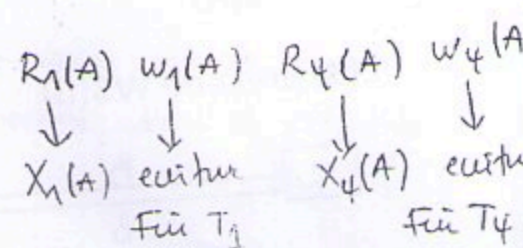 R1(A) W1(A) R4(A) W4(A
X1(A) escritura X4(A) escritu
Fin T1 Fin T4